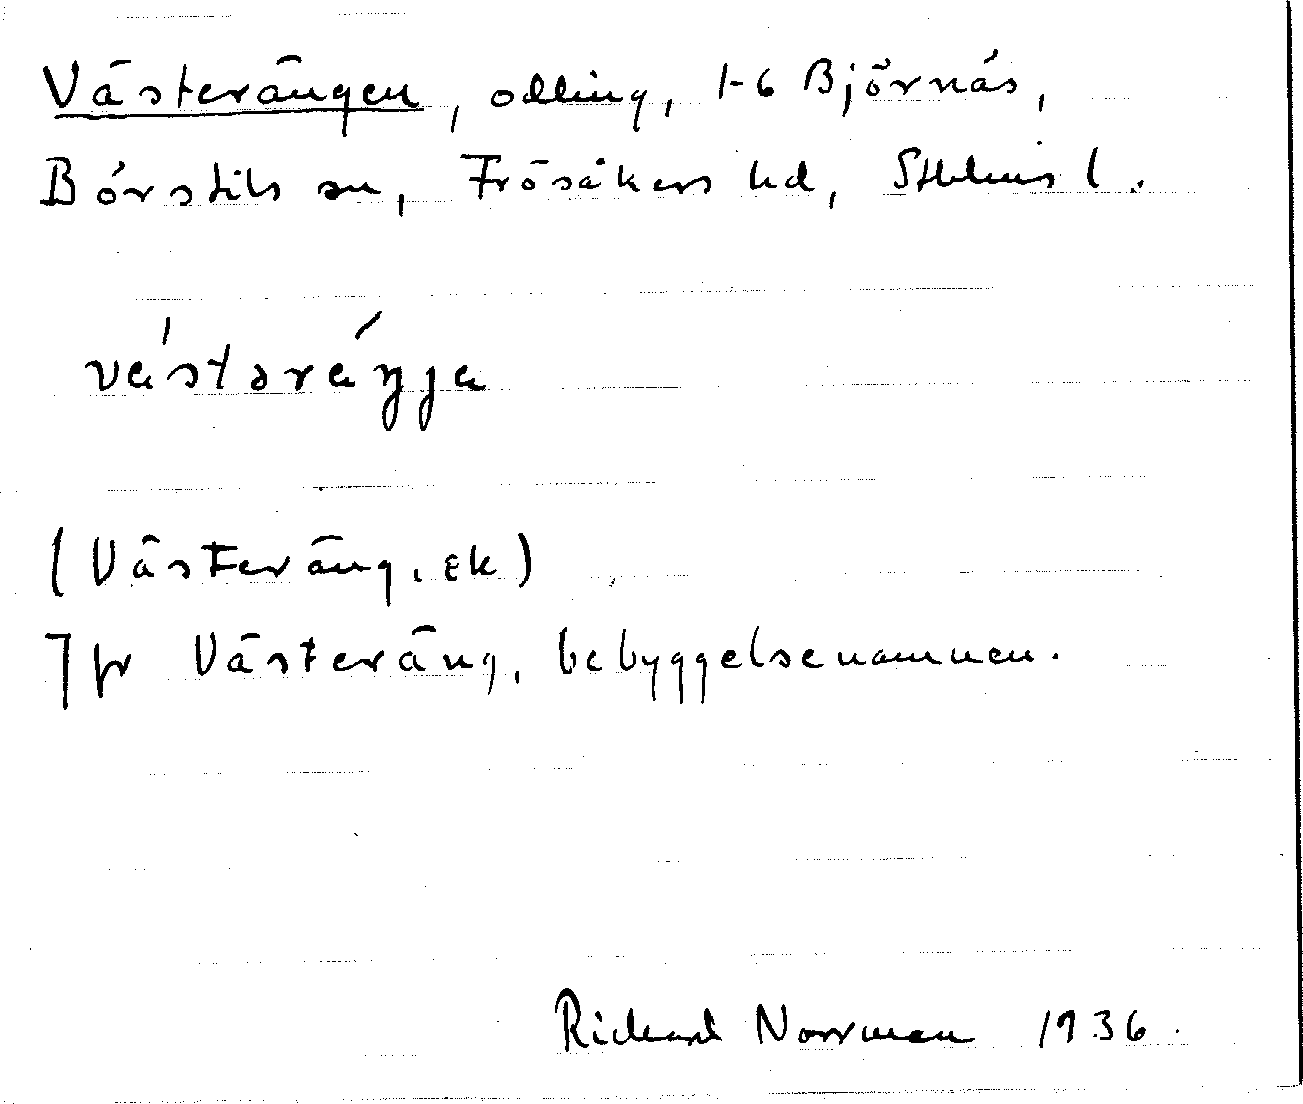 Västerängen, odling, 1-6 Björnäs,
Börstils sn, Frösåkers hd, Sthlms l.
västəräŋja
(Västeräng, Ek)
Jfr Västeräng, bebyggelsenamnen.
Rickard Norrman 1936.